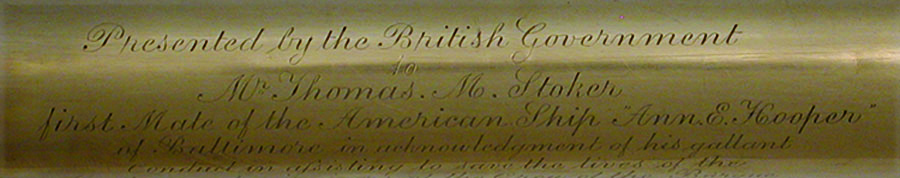 Presented by the British Government
to
Mr. Thomas. M. Stoker
first Mate of the American Ship "Ann. E. Hooper"
of Baltimore in acknowledgment of his gallant
Conduct in assisting to save the lives of the
of the Barque